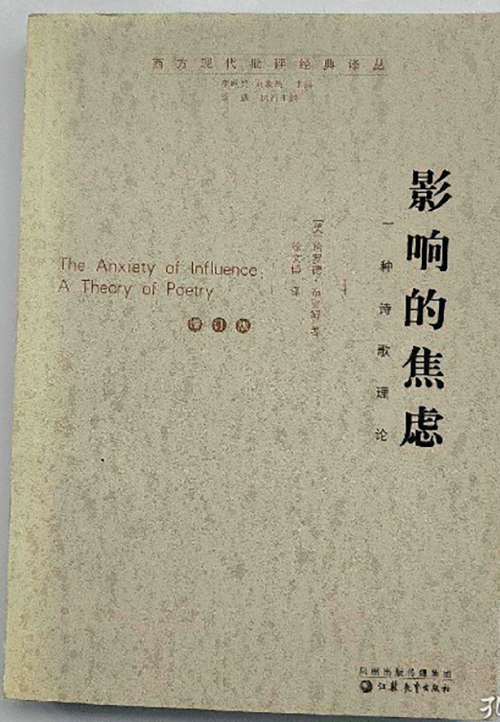 西方现代批评经典译丛
影响的焦虑
一种诗歌理论
[美]哈罗德·布鲁姆 著
徐文博 译
The Anxiety of Influence:
A Theory of Poetry
增订版
凤凰出版传媒集团
江苏教育出版社